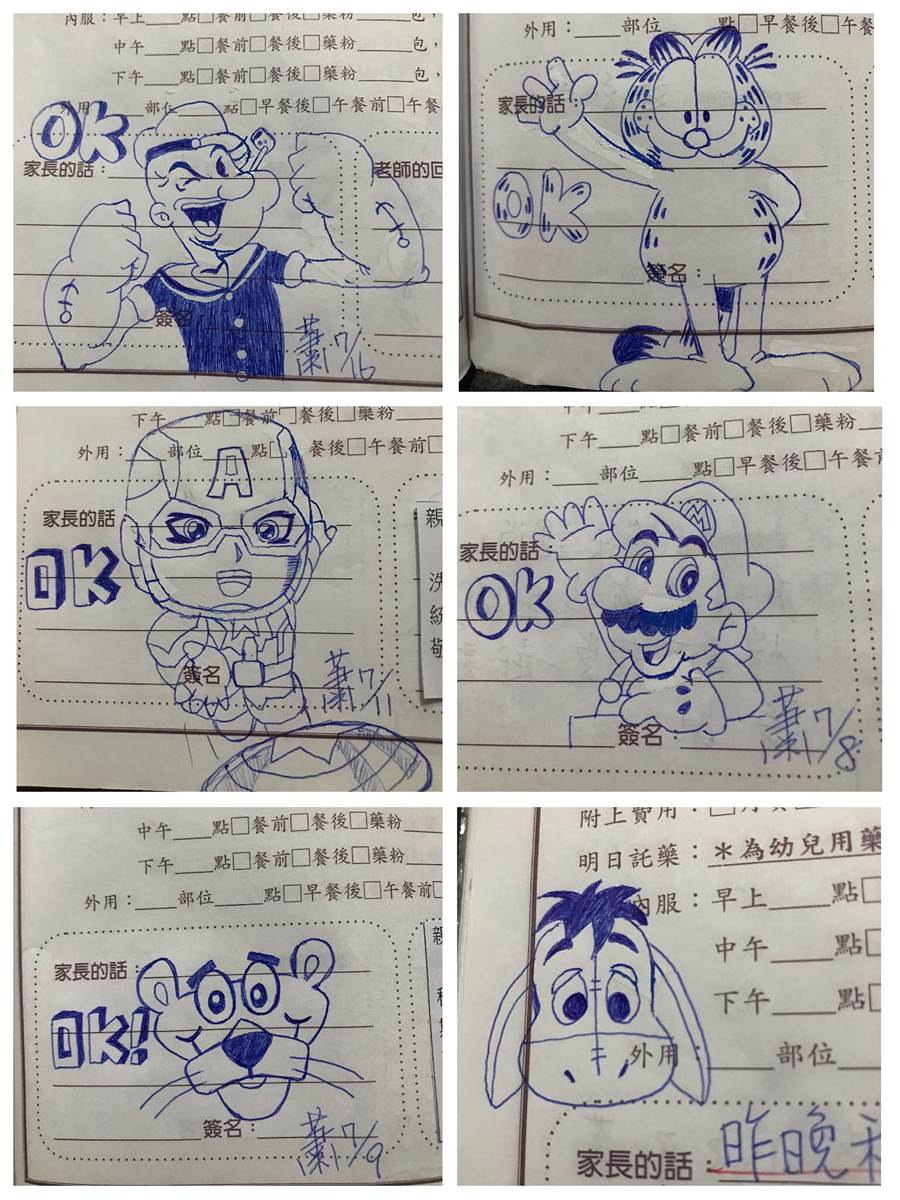 內服：早上____點□餐前□餐後□藥粉____包，
中午____點□餐前□餐後□藥粉____包，
下午____點□餐前□餐後□藥粉____包，
外用 部位____點□早餐後□午餐前□午餐
OK
家長的話：
老師的回
簽名
蕭 7/16
外用：____部位____點□早餐後□午餐
家長的話
OK
簽名：
下午____點□餐前□餐後□藥粉
外用：____部位____點□ 餐後□午餐前□
A
家長的話
OK
親
洗
統
敬
簽名
蕭 7/11
下午____點□餐前□餐後□藥粉
外用：____部位____點□早餐後□午餐前
M
家長的話：
OK
簽名：
蕭 7/8
中午____點□餐前□餐後□藥粉
下午____點□餐前□餐後□藥粉
外用：____部位____點□早餐後□午餐前□
親
家長的話：
OK!
簽名：
蕭 7/9
附上費用：□月
明日託藥：＊為幼兒用藥
內服：早上____點□
中午____點□
下午____點□
外用：____部位
家長的話：昨晚